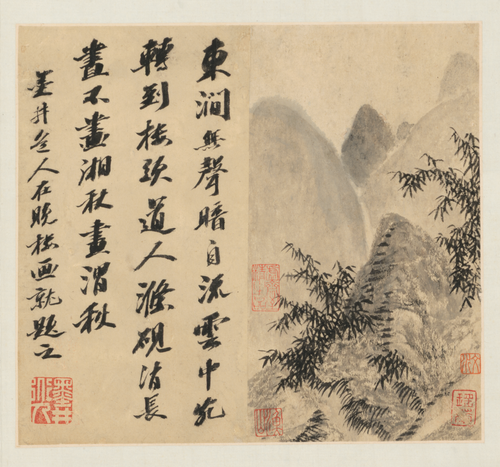 東澗無聲暗自流雲中宛
轉到楼頭道人滌硯消長
晝不畫湘秋畫渭秋
墨井道人在晚楼画就題之